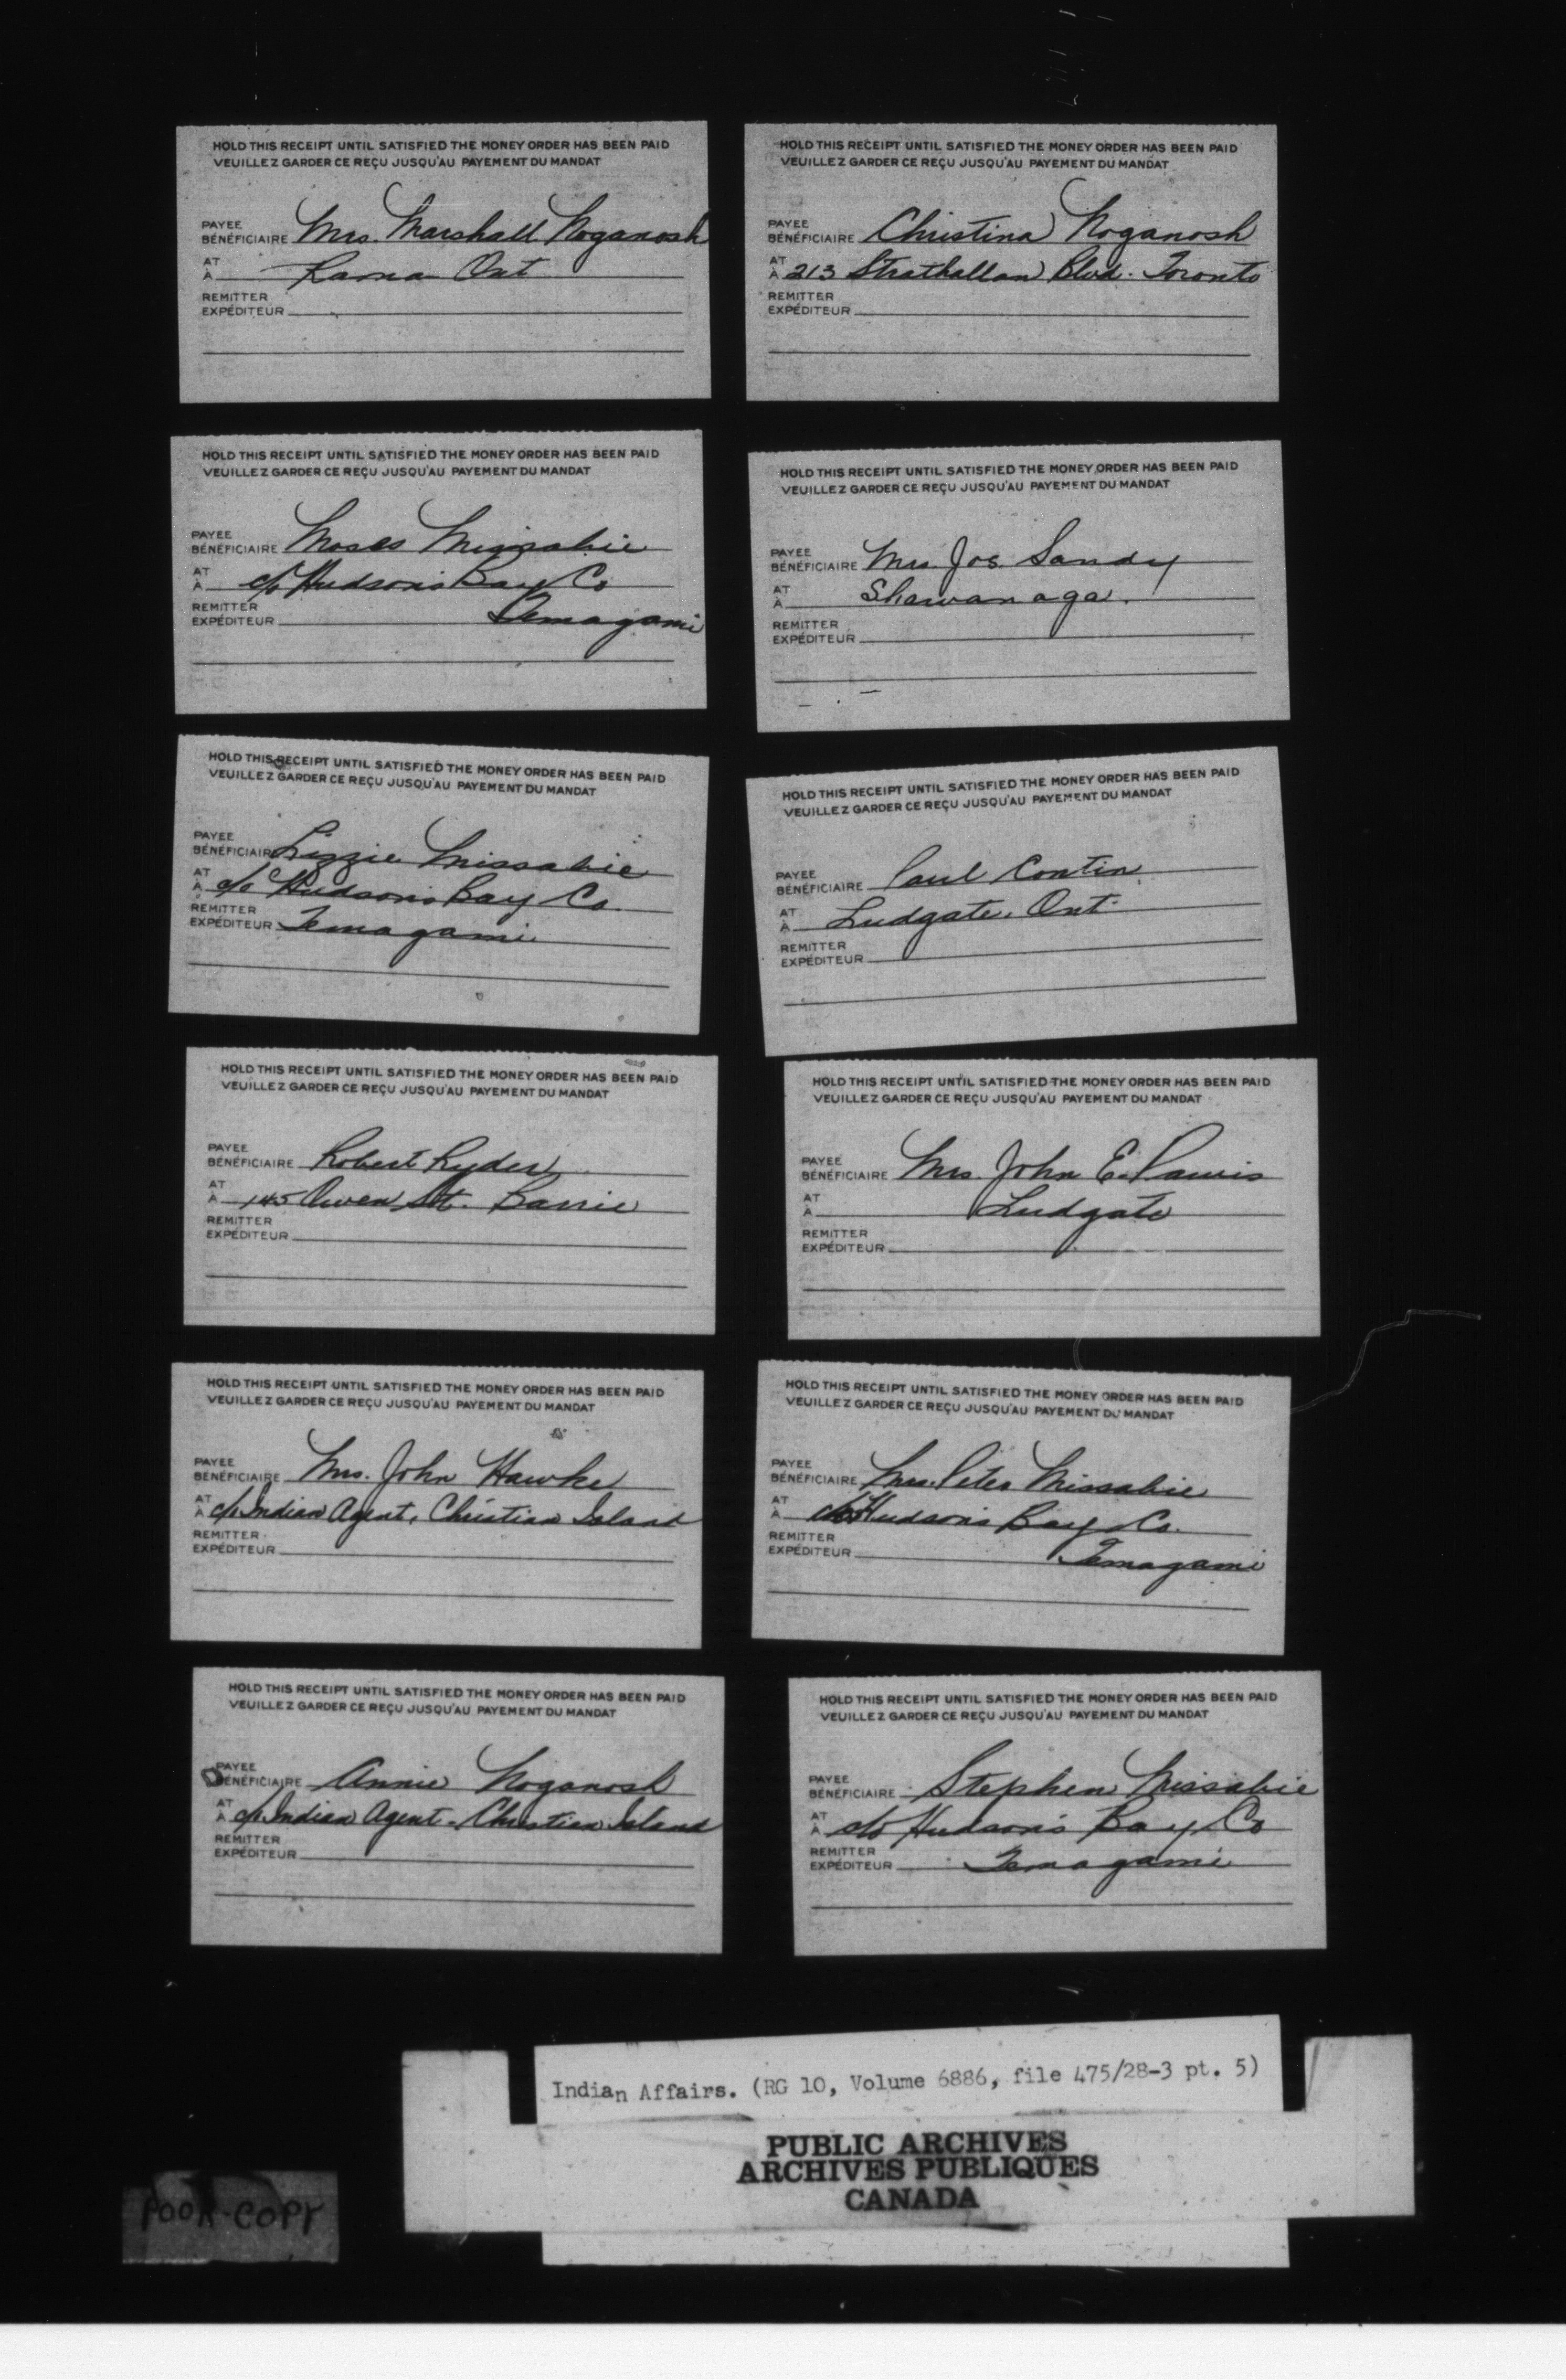 HOLD THIS RECEIPT UNTIL SATISFIED THE MONEY ORDER HAS BEEN PAID
VEUILLEZ GARDER CE REÇU JUSQU'AU PAYEMENT DU MANDAT
PAYEE
BÉNÉFICIAIRE Mrs. Marshall Noganosh
AT
À Rama Ont
REMITTER
EXPÉDITEUR
HOLD THIS RECEIPT UNTIL SATISFIED THE MONEY ORDER HAS BEEN PAID
VEUILLEZ GARDER CE REÇU JUSQU'AU PAYEMENT DU MANDAT
PAYEE
BÉNÉFICIAIRE Christina Noganosh
AT
À 213 Strathallan Blvd. Toronto
REMITTER
EXPÉDITEUR
HOLD THIS RECEIPT UNTIL SATISFIED THE MONEY ORDER HAS BEEN PAID
VEUILLEZ GARDER CE REÇU JUSQU'AU PAYEMENT DU MANDAT
PAYEE
BÉNÉFICIAIRE Moses Missabie
AT
À c/o Hudson's Bay Co
REMITTER
EXPÉDITEUR Temagami
HOLD THIS RECEIPT UNTIL SATISFIED THE MONEY ORDER HAS BEEN PAID
VEUILLEZ GARDER CE REÇU JUSQU'AU PAYEMENT DU MANDAT
PAYEE
BÉNÉFICIAIRE Mrs. Jos. Sandy
AT
À Shawanaga.
REMITTER
EXPÉDITEUR
HOLD THIS RECEIPT UNTIL SATISFIED THE MONEY ORDER HAS BEEN PAID
VEUILLEZ GARDER CE REÇU JUSQU'AU PAYEMENT DU MANDAT
PAYEE
BÉNÉFICIAIRE Lizzie Missabie
AT
À c/o Hudson's Bay Co.
REMITTER
EXPÉDITEUR Temagami
HOLD THIS RECEIPT UNTIL SATISFIED THE MONEY ORDER HAS BEEN PAID
VEUILLEZ GARDER CE REÇU JUSQU'AU PAYEMENT DU MANDAT
PAYEE
BÉNÉFICIAIRE Paul Contin
AT
À Ludgate, Ont.
REMITTER
EXPÉDITEUR
HOLD THIS RECEIPT UNTIL SATISFIED THE MONEY ORDER HAS BEEN PAID
VEUILLEZ GARDER CE REÇU JUSQU'AU PAYEMENT DU MANDAT
PAYEE
BÉNÉFICIAIRE Robert Ryder
AT
À 145 Owen St. Barrie
REMITTER
EXPÉDITEUR
HOLD THIS RECEIPT UNTIL SATISFIED THE MONEY ORDER HAS BEEN PAID
VEUILLEZ GARDER CE REÇU JUSQU'AU PAYEMENT DU MANDAT
PAYEE
BÉNÉFICIAIRE Mrs. John E. Pawis
AT
À Ludgate
REMITTER
EXPÉDITEUR
HOLD THIS RECEIPT UNTIL SATISFIED THE MONEY ORDER HAS BEEN PAID
VEUILLEZ GARDER CE REÇU JUSQU'AU PAYEMENT DU MANDAT
PAYEE
BÉNÉFICIAIRE Mrs. John Hawke
AT
À c/o Indian Agent, Christian Island
REMITTER
EXPÉDITEUR
HOLD THIS RECEIPT UNTIL SATISFIED THE MONEY ORDER HAS BEEN PAID
VEUILLEZ GARDER CE REÇU JUSQU'AU PAYEMENT DU MANDAT
PAYEE
BÉNÉFICIAIRE Mrs. Peter Missabie
AT
À c/o Hudson's Bay Co.
REMITTER
EXPÉDITEUR Temagami
HOLD THIS RECEIPT UNTIL SATISFIED THE MONEY ORDER HAS BEEN PAID
VEUILLEZ GARDER CE REÇU JUSQU'AU PAYEMENT DU MANDAT
PAYEE
BÉNÉFICIAIRE Annie Noganosh
AT
À c/o Indian Agent - Christian Island
REMITTER
EXPÉDITEUR
HOLD THIS RECEIPT UNTIL SATISFIED THE MONEY ORDER HAS BEEN PAID
VEUILLEZ GARDER CE REÇU JUSQU'AU PAYEMENT DU MANDAT
PAYEE
BÉNÉFICIAIRE Stephen Missabie
AT
À c/o Hudson's Bay Co
REMITTER
EXPÉDITEUR Temagami
Indian Affairs. (RG 10, Volume 6886, file 475/28-3 pt. 5)
PUBLIC ARCHIVES
ARCHIVES PUBLIQUES
CANADA
POOR COPY